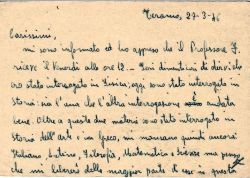 Teramo, 27-3-46
Carissimi,
mi sono informato ed ho appreso che il Professore
riceve il Venerdì alle ore 12. - Ieri dimenticai di dirvi che
ero stato interrogato in Fisica; oggi, sono stato interrogato in
storia: sia l'una che l'altra interrogazione sono andate
bene. Oltre a queste due materie sono stato interrogato in
Storia dell'Arte e in Greco, mi mancano quindi ancora
Italiano, Latino, Filosofia, Matematica e Scienze ma penso
che mi libererò della maggior parte di esse in questa